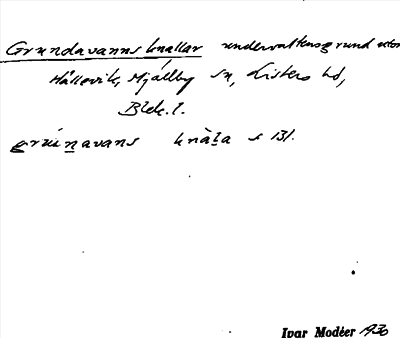 Grundavanns knallar undervattensgrund utom
Hällevik, Mjällby sn, Listers hd,
Blek. l.
knàḷa s 131.
Ivar Modéer 1930